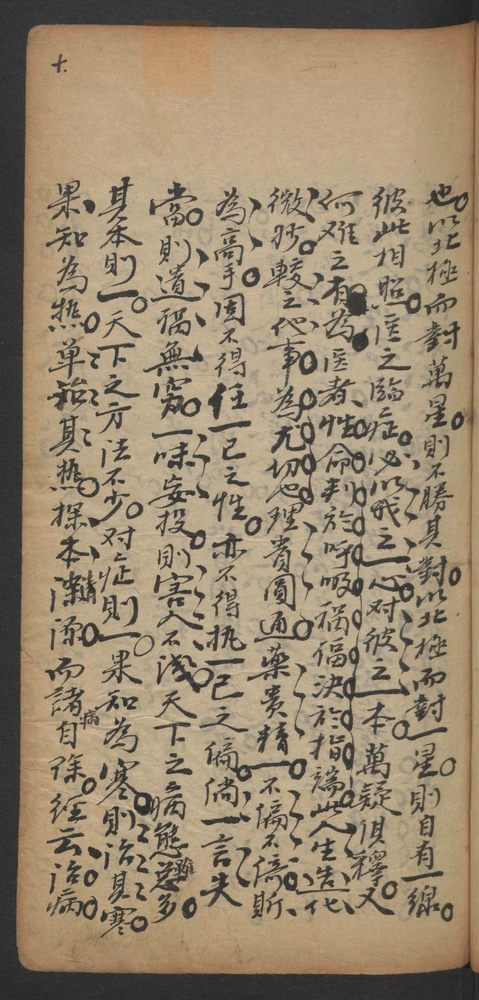 十
也以北極而對萬星則不勝其對以北極而對一星則自有一線
彼此相照医之臨症必以我之一心对彼之一本萬疑俱釋又
何难之有為医者性命判於呼吸禍福決於指端此人生造化
微妙較之他事為尤切也理貴圓通藥貴精一不偏不倚斯
為高手固不得任一己之性亦不得执一己之偏倘一言失
當則遺禍無窮一味妄投則害人不浅天下之病態雖多
其本則一天下之方法不少对症則一果知為寒則治其寒
果知為热单治其热探本清源而諸病自除經云治病